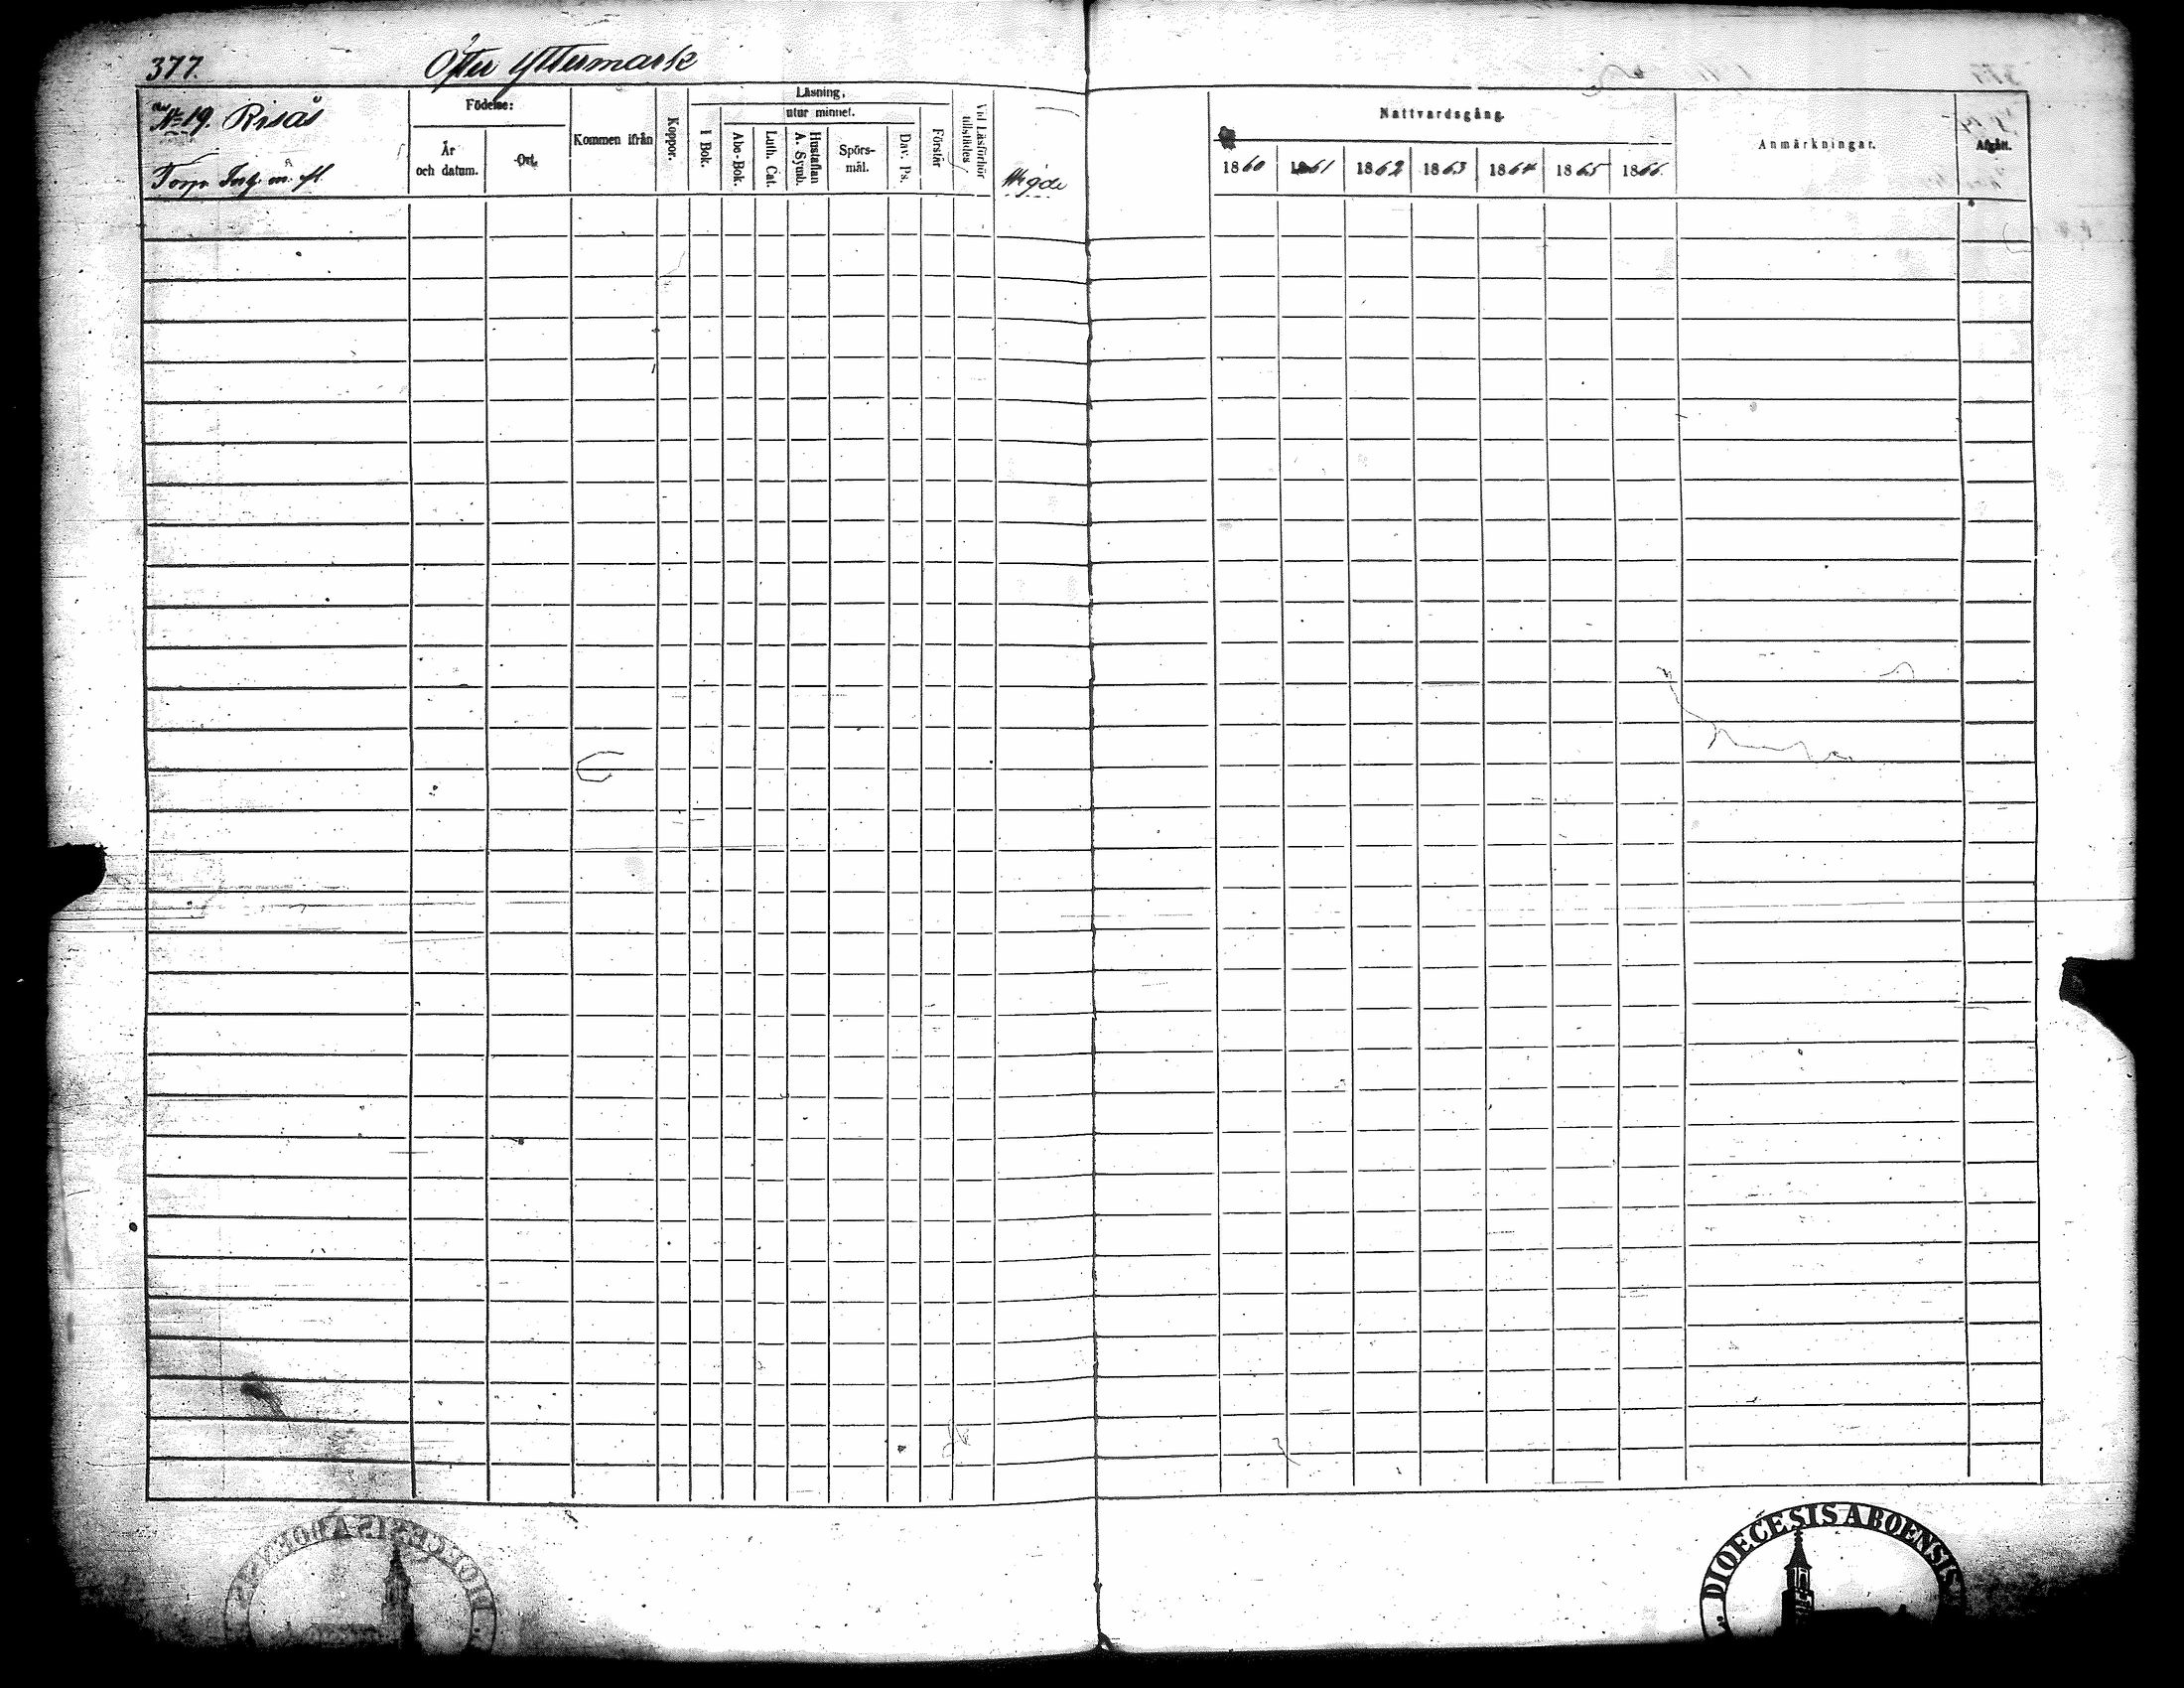 377.
Öfter Yttermark
№ 19. Risås
Torp. Inh. m. fl.
Födelse:
År
och datum.
Ort.
Kommen ifrån
Koppor.
Läsning,
utur minnet.
I Bok.
Abc-Bok.
Luth. Cat.
Hustaflan
A. Symb.
Spörs-
mål.
Dav. Ps.
Förstår
Vid Läsförhör
tillstädes
Wigde
Nattvardsgång.
1860 1861 1862 1863 1864 1865 1866.
Anmärkningar.
Afgått.
DIOECESIS ABOENSIS